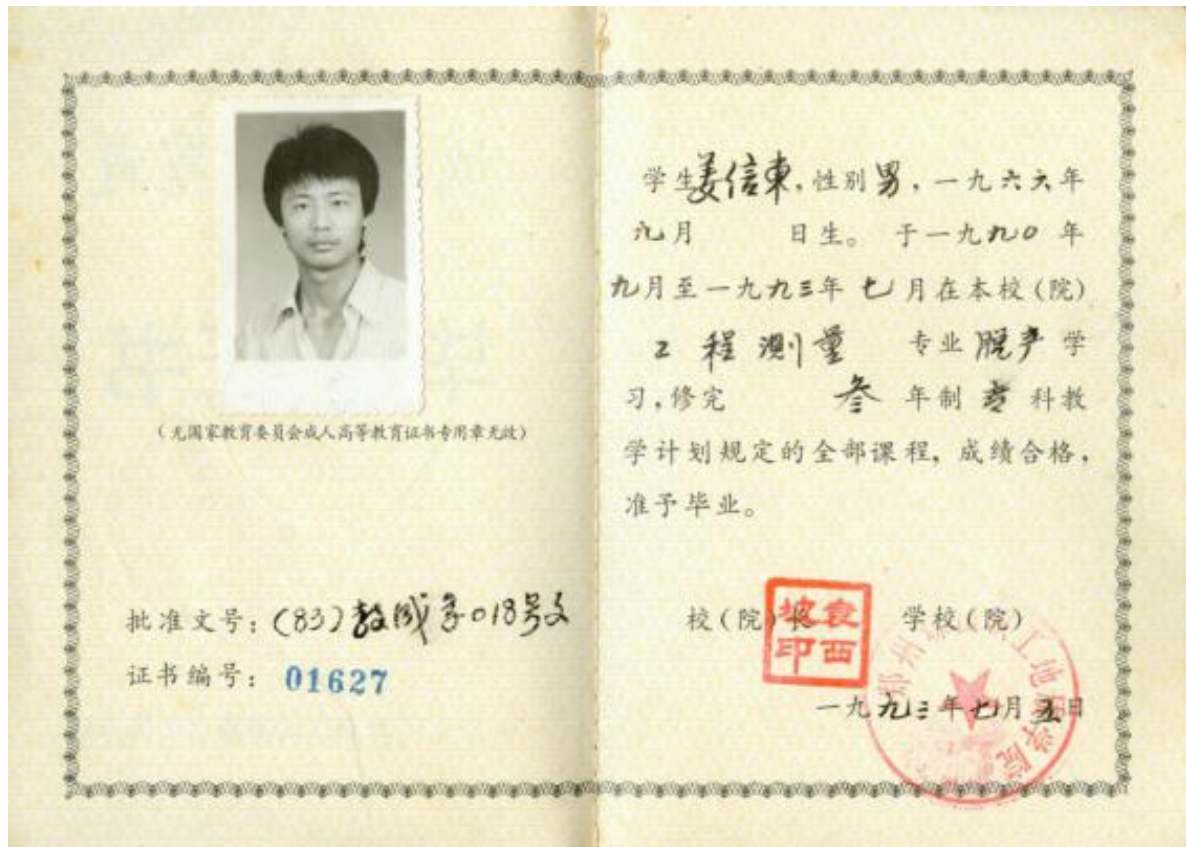 (无国家教育委员会成人高等教育证书专用章无效)
批准文号：(83)教成字018号文
证书编号：01627
学生姜信東，性别男，一九六六年
九月 日生。于一九九〇年
九月至一九九三年七月在本校(院)
工程测量 专业脱产学
习，修完 叁年制专科教
学计划规定的全部课程，成绩合格，
准予毕业。
校(院)长 学校(院)
袁西坡印
郑州 工地 学院
一九九三年七月五日